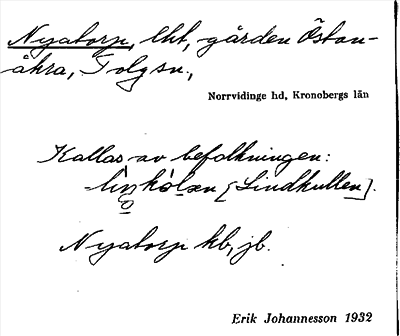 Nyatorp, lht, gården Östan-
åkra, Tolgsn.,
Norrvidinge hd, Kronobergs län
Kallas av befolkningen:
[Lindkullen].
Nyatorp kb, jb.
Erik Johannesson 1932